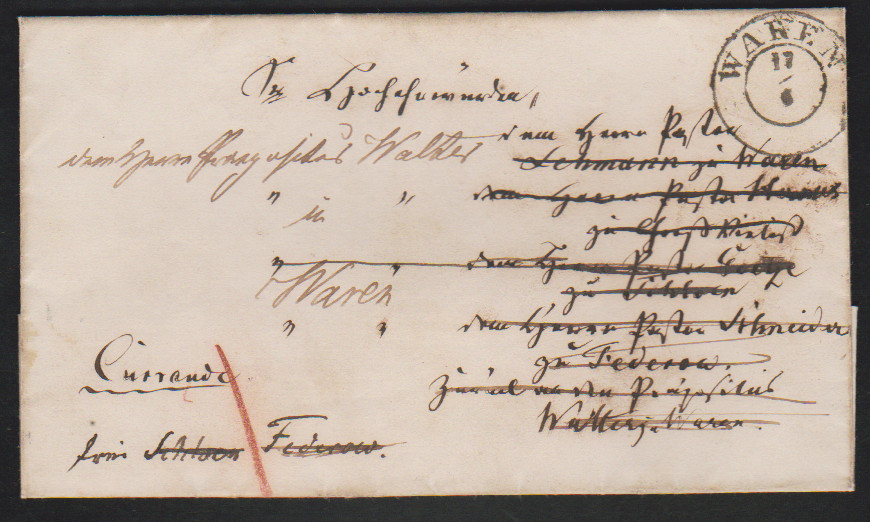 WAREN
17/6
Sr Hochehrwürden,
dem Herrn Pastor
dem Herrn Praepositus Walter
Lehmann zu Waren
" " dem Herrn Pastor
in
zu Groß Vielist
" " dem Herrn Pastor
Waren
zu Schloen
" " dem Herrn Pastor Schneider
zu Federow.
Currende
Zurück an den Präpositus
Walter zu Waren.
frei Schloen Federow.